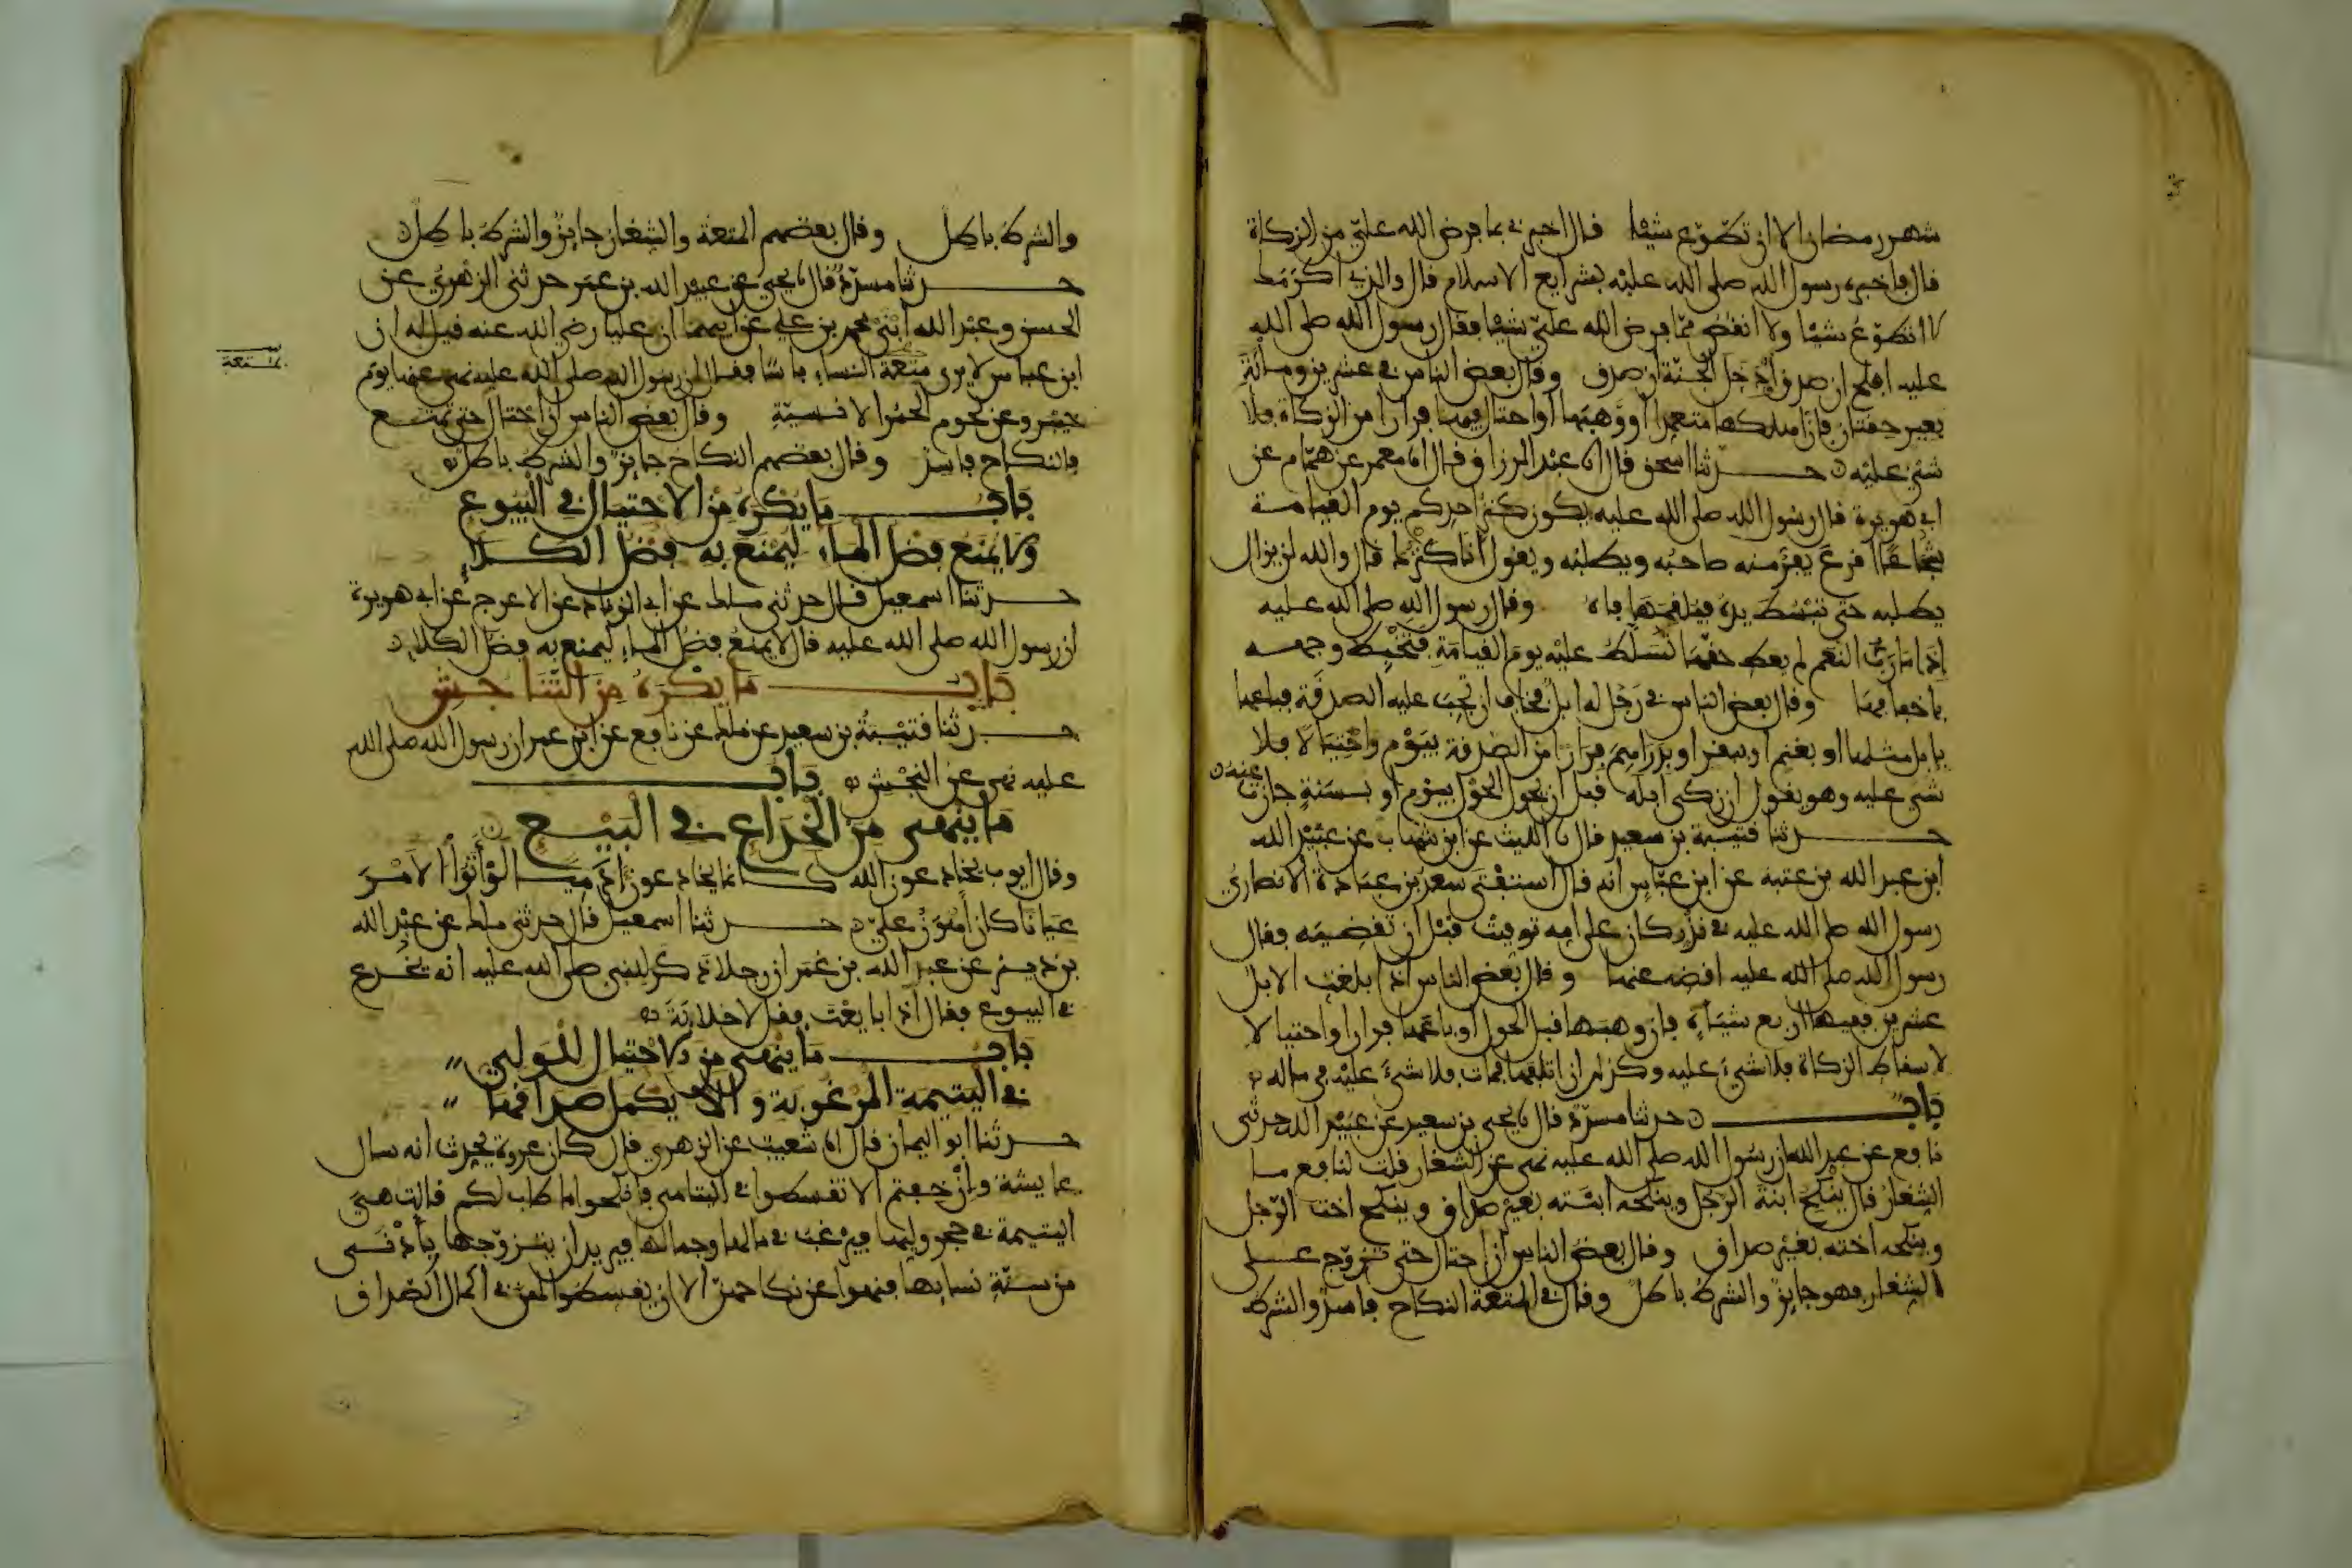 شهر رمضان الا ان تطوع شيئا فال اخبرني بما فرض الله علي من الزكاة
فال فاخبره رسول الله صلى الله عليه بشرايع الاسلام فال والذي اكرمك
لا اتطوع شيئا ولا انقص مما فرض الله علي شيئا ففال رسول الله صلى الله
عليه افلح ان صدق او دخل الجنة ان صدق وفال بعض الناس في عشرين ومائة
بعير حقتان فان اهلكها متعمدا او وهبها او احتال فيها فرارا من الزكاة فلا
شيء عليه حدثنا اسحق فال انا عبد الرزاق فال انا معمر عن همام عن
ابي هريرة فال رسول الله صلى الله عليه يكون كنز احدكم يوم القيامة
شجاعا اقرع يفر منه صاحبه ويطلبه ويقول انا كنزك فال والله لن يزال
يطلبه حتى يبسط يده فيلقمها فاه وفال رسول الله صلى الله عليه
اذا ما رب النعم لم يعط حقها تسلط عليه يوم القيامة فتخبط وجهه
باخفافها وفال بعض الناس في رجل له ابل فخاف ان تجب عليه الصدقة فباعها
بابل مثلها او بغنم او ببقر او بدراهم فرارا من الصدقة بيوم واحتيالا فلا
شيء عليه وهو يقول ان زكى ابله قبل ان يحول الحول بيوم او بسنة جازت عنه
حدثنا قتيبة بن سعيد فال نا الليث عن ابن شهاب عن عبيد الله
ابن عبد الله بن عتبة عن ابن عباس انه فال استفتى سعد بن عبادة الانصاري
رسول الله صلى الله عليه في نذر كان على امه توفيت قبل ان تقضيه ففال
رسول الله صلى الله عليه اقضه عنها وفال بعض الناس اذا بلغت الابل
عشرين ففيها اربع شياه فان وهبها قبل الحول او باعها فرارا واحتيالا
لاسقاط الزكاة فلا شيء عليه وكذلك ان اتلفها فمات فلا شيء عليه في ماله
باب حدثنا مسدد فال نا يحيى بن سعيد عن عبيد الله حدثني
نافع عن عبد الله ان رسول الله صلى الله عليه نهى عن الشغار قلت لنافع ما
الشغار فال ينكح ابنة الرجل وينكحه ابنته بغير صداق وينكح اخت الرجل
وينكحه اخته بغير صداق وفال بعض الناس ان احتال حتى تزوج على
الشغار فهو جايز والشرط باطل وفال في المتعة النكاح فاسد والشرط
والشرط باطل وفال بعضهم المتعة والشغار جايز والشرط باطل
حدثنا مسدد فال نا يحيى عن عبيد الله بن عمر حدثني الزهري عن
الحسن وعبد الله ابني محمد بن علي عن ابيهما ان عليا رضي الله عنه قيل له ان
ابن عباس لا يرى بمتعة النساء باسا ففال ان رسول الله صلى الله عليه نهى عنها يوم
خيبر وعن لحوم الحمر الانسية وفال بعض الناس ان احتال حتى تمتع
فالنكاح فاسد وفال بعضهم النكاح جايز والشرط باطل
باب ما يكره من الاحتيال في البيوع
ولا يمنع فضل الماء ليمنع به فضل الكلا
حدثنا اسمعيل فال حدثني ملك عن ابي الزناد عن الاعرج عن ابي هريرة
ان رسول الله صلى الله عليه فال لا يمنع فضل الماء ليمنع به فضل الكلا
باب ما يكره من التناجش
حدثنا قتيبة بن سعيد عن ملك عن نافع عن ابن عمر ان رسول الله صلى الله
عليه نهى عن النجش باب
ما ينهى من الخداع في البيع
وفال ايوب يخادعون الله كانما يخادعون ادميا لو اتوا الامر
عيانا كان اهون علي حدثنا اسمعيل فال حدثني ملك عن عبد الله
بن دينر عن عبد الله بن عمر ان رجلا ذكر للنبي صلى الله عليه انه يخدع
في البيوع ففال اذا بايعت فقل لا خلابة
باب ما ينهى من الاحتيال للولي
في اليتيمة المرغوبة والا يكمل صداقها
حدثنا ابو اليمان فال انا شعيب عن الزهري فال كان عروة يحدث انه سال
عايشة وان خفتم الا تقسطوا في اليتامى فانكحوا ما طاب لكم فالت هي
اليتيمة في حجر وليها فيرغب في مالها وجمالها فيريد ان يتزوجها بادنى
من سنة نسايها فنهوا عن نكاحهن الا ان يقسطوا لهن في اكمال الصداق
بمتعة